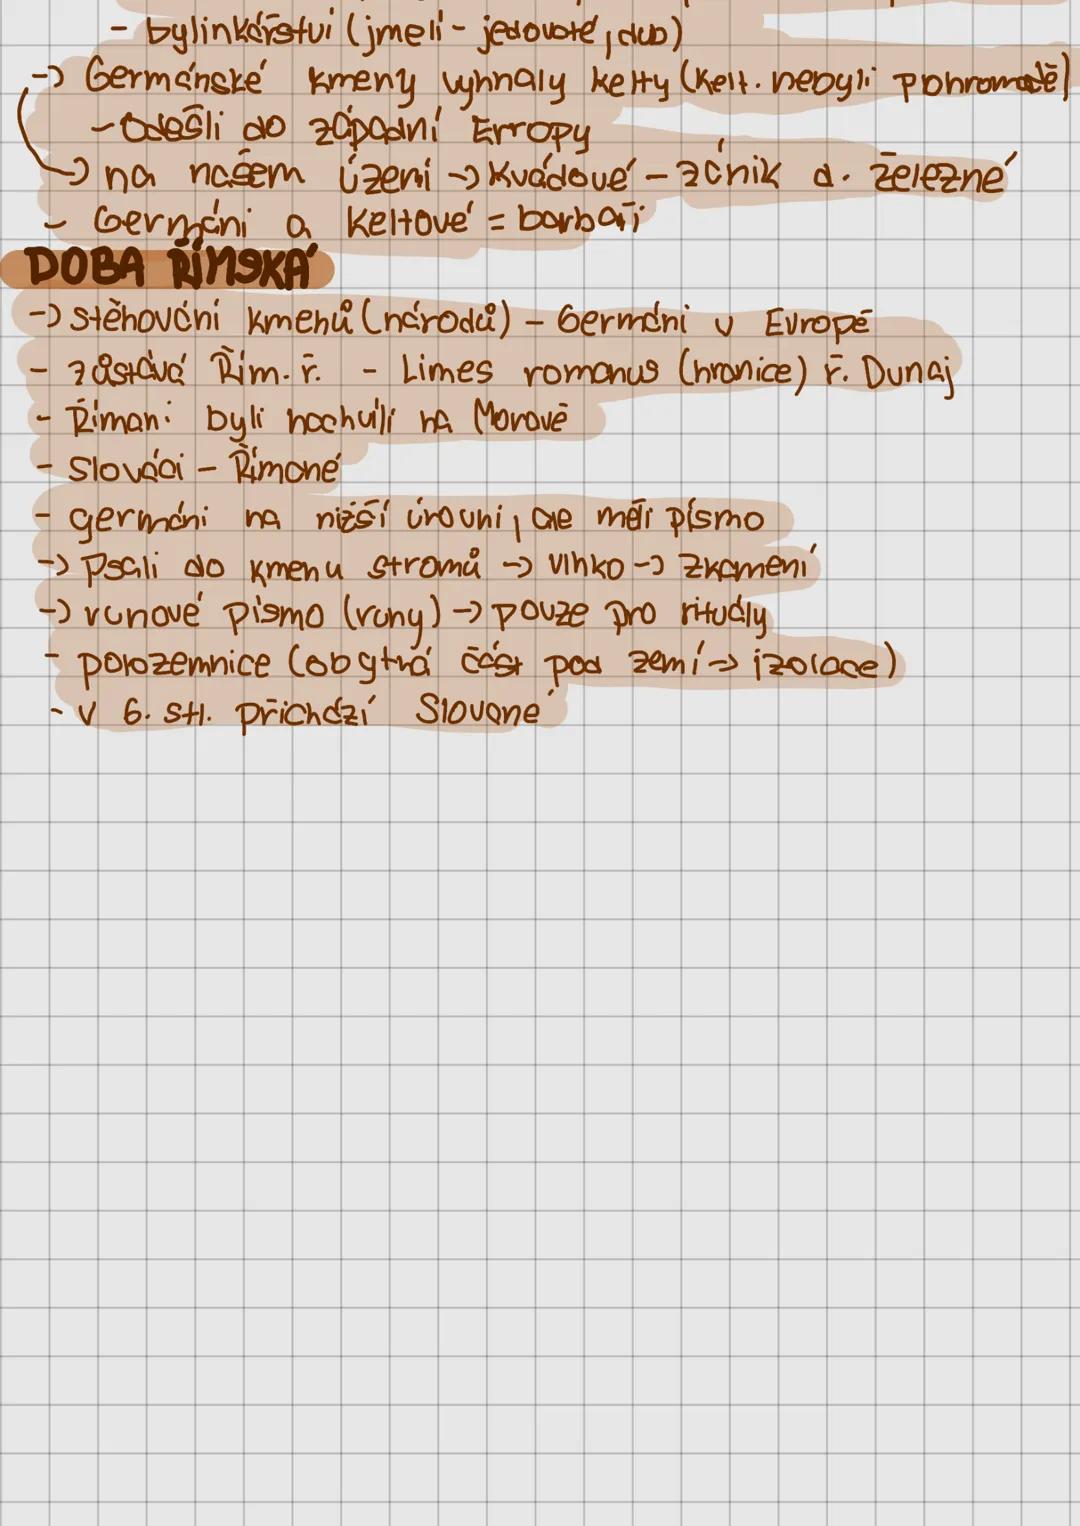 - bylinkářství (jmelí - jedovaté, dub)
-> Germánské kmeny vyhnaly kelty (kelt. nebyli pohromadě)
- Odešli do západní Erropy
-> na našem území -> Kvádové - zánik d. železné
- Germáni a keltové = barbaři
DOBA ŘÍMSKÁ
-> stěhování kmenů (národů) - Germáni v Evropě
- zůstává Řím. ř. - Limes romanus (hranice) ř. Dunaj
- Římani byli hochvíli na Moravě
- Slováci - Římané
- germáni na nižší úrovni, ale měli písmo
-> Psali do kmenu stromů -> vlhko -> zkamení
-> runové písmo (runy) -> pouze pro rituály
- polozemnice (obytná část pod zemí -> izolace)
- v 6. stl. přichází Slované